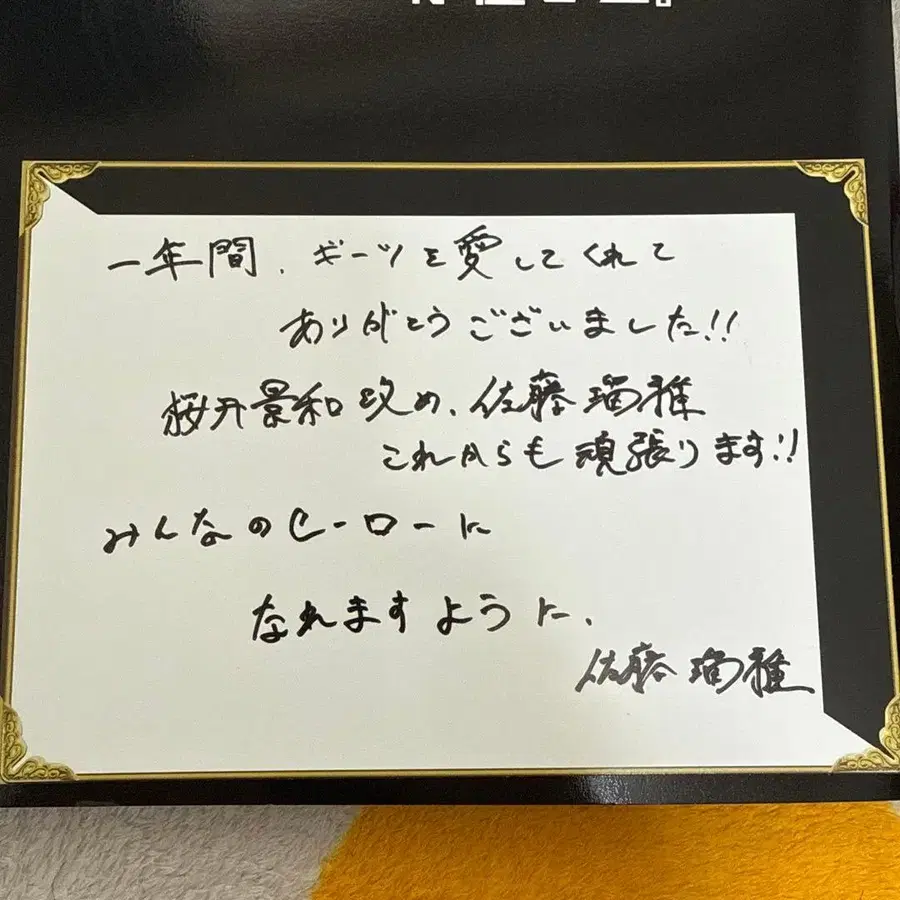 一年間、ギーツを愛してくれて
ありがとうございました!!
桜井景和改め、佐藤瑠雅
これからも頑張ります!!
みんなのヒーローに
なれますように、
佐藤瑠雅